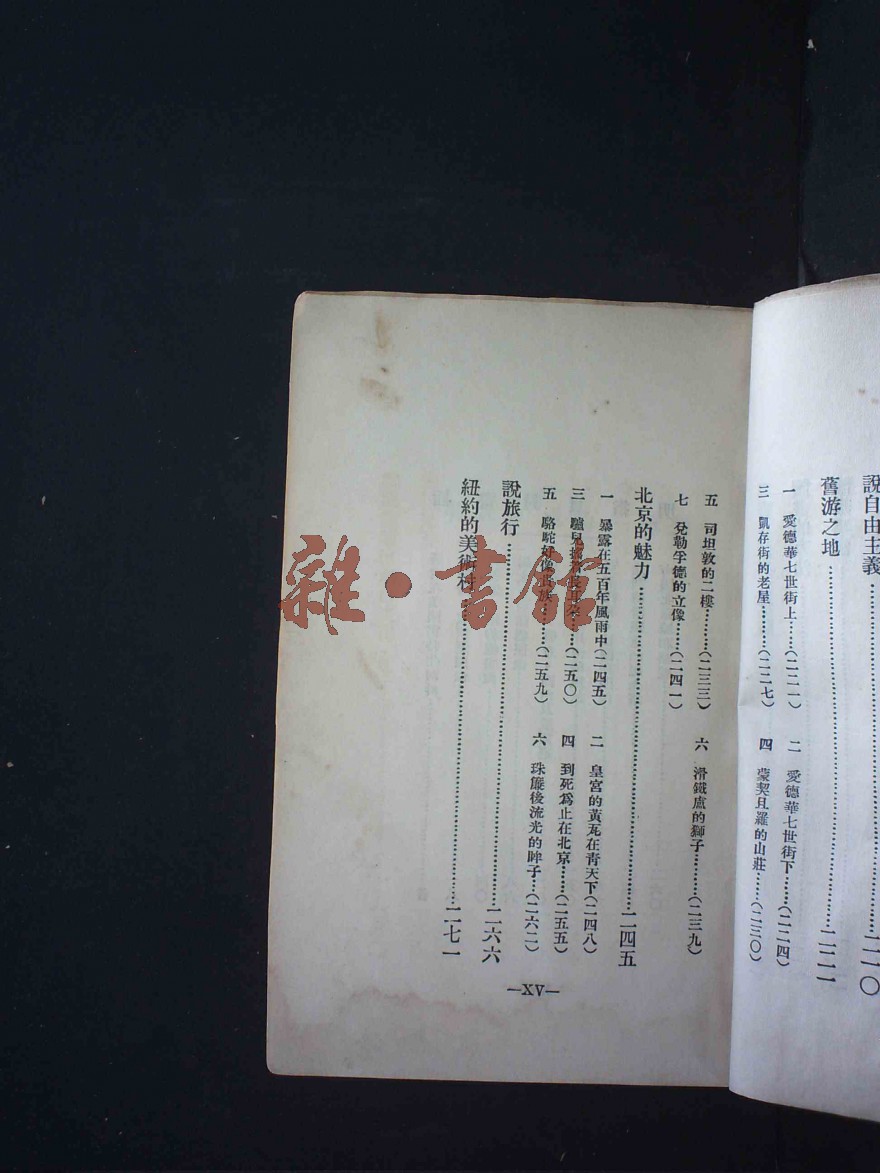 說自由主義……二一〇
舊游之地……二二一
一 愛德華七世街上……(二二一) 二 愛德華七世街下……(二二四)
三 凱存街的老屋……(二二七) 四 蒙契且羅的山莊……(二三〇)
五 司坦敦的二樓……(二三三) 六 滑鐵盧的獅子……(二三九)
七 兌勒孚德的立像……(二四一)
北京的魅力……二四五
一 暴露在五百年風雨中(二四五) 二 皇宮的黃瓦在青天下(二四八)
三 驢兒搖着長耳朵……(二五〇) 四 到死爲止在北京……(二五五)
五 駱駝好像貴族……(二五九) 六 珠簾後流光的眸子…(二六二)
說旅行……二六六
紐約的美術村……二七一
—XV—
雜·書館